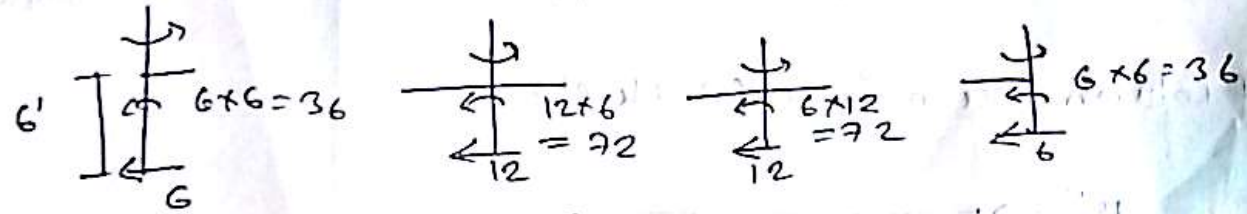 6'
6×6=36
6
12×6
=72
12
6×12
=72
12
6×6=36
6